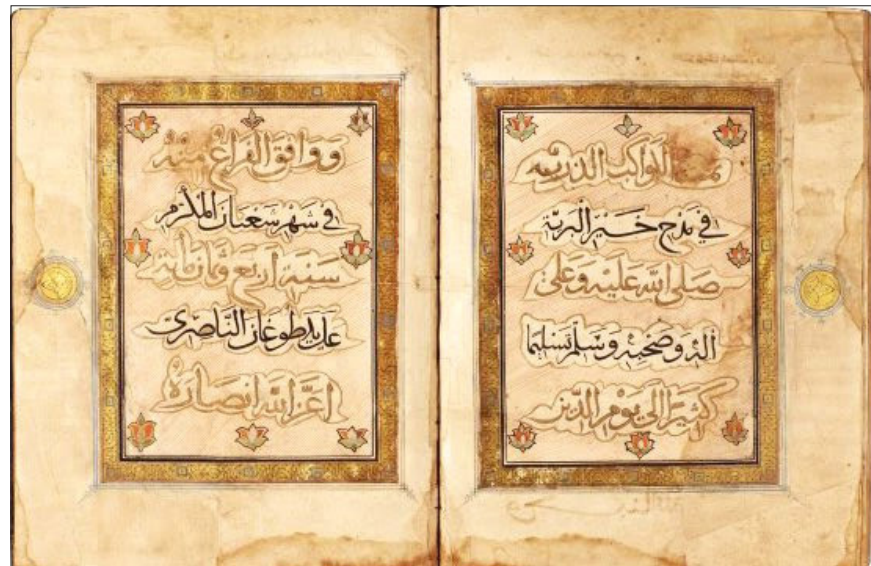 الكواكب الدريه
في مدح خير البرية
صلى الله عليه وعلى
اله وصحبه وسلم تسليما
كثيرا الى يوم الدين
ووافق الفراغ منه
في شهر شعبان المكرم
سنة اربع
على يد طوغان الناصرى
اعز الله انصاره